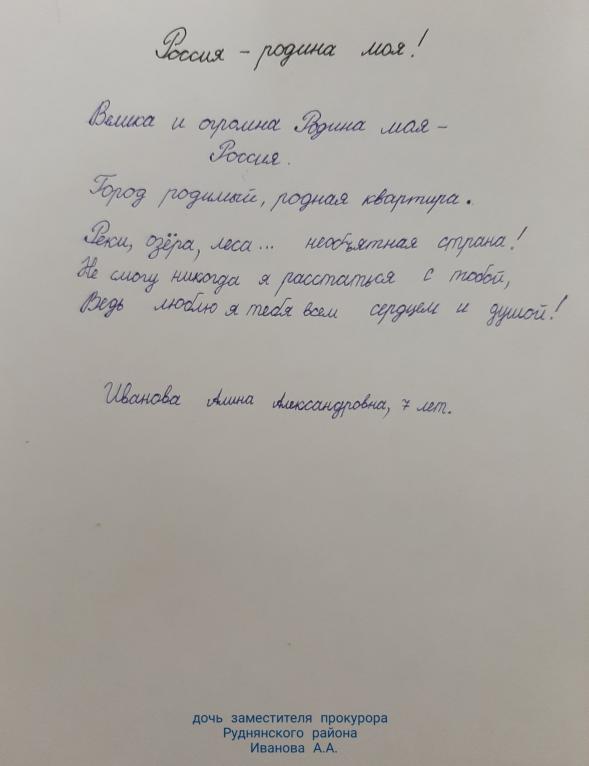 Россия - родина моя!
Велика и огромна Родина моя -
Россия.
Город родимый, родная квартира.
Реки, озёра, леса... необъятная страна!
Не смогу никогда я расстаться с тобой,
Ведь люблю я тебя всем сердцем и душой!
Иванова Алина Александровна, 7 лет.
дочь заместителя прокурора
Руднянского района
Иванова А.А.